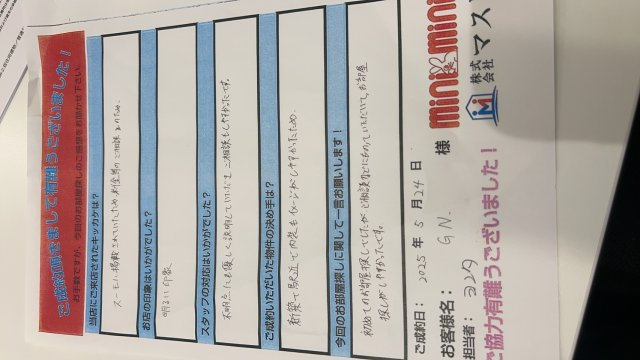 ご成約頂きまして有難うございました！
お手数ですが、今回のお部屋探しのご感想をお聞かせ下さい。
当店にご来店されたキッカケは？
スーモに掲載されていたため
お店の印象はいかがでした？
明るい印象
スタッフの対応はいかがでした？
不明点にも優しく説明していただき ご相談もしやすかったです。
ご成約いただいた物件の決め手は？
新築で駅近で内装もイメージがしやすかったため。
今回のお部屋探しに関して一言お願いします！
初めてのお部屋探しでしたが ご相談などにものっていただいて、お部屋
探しがしやすかったです。
ご成約日： 2025 年 5 月 24 日
お客様名： G N. 様
担当者：
ご協力有難うございました！
mini mini
株式会社 マス